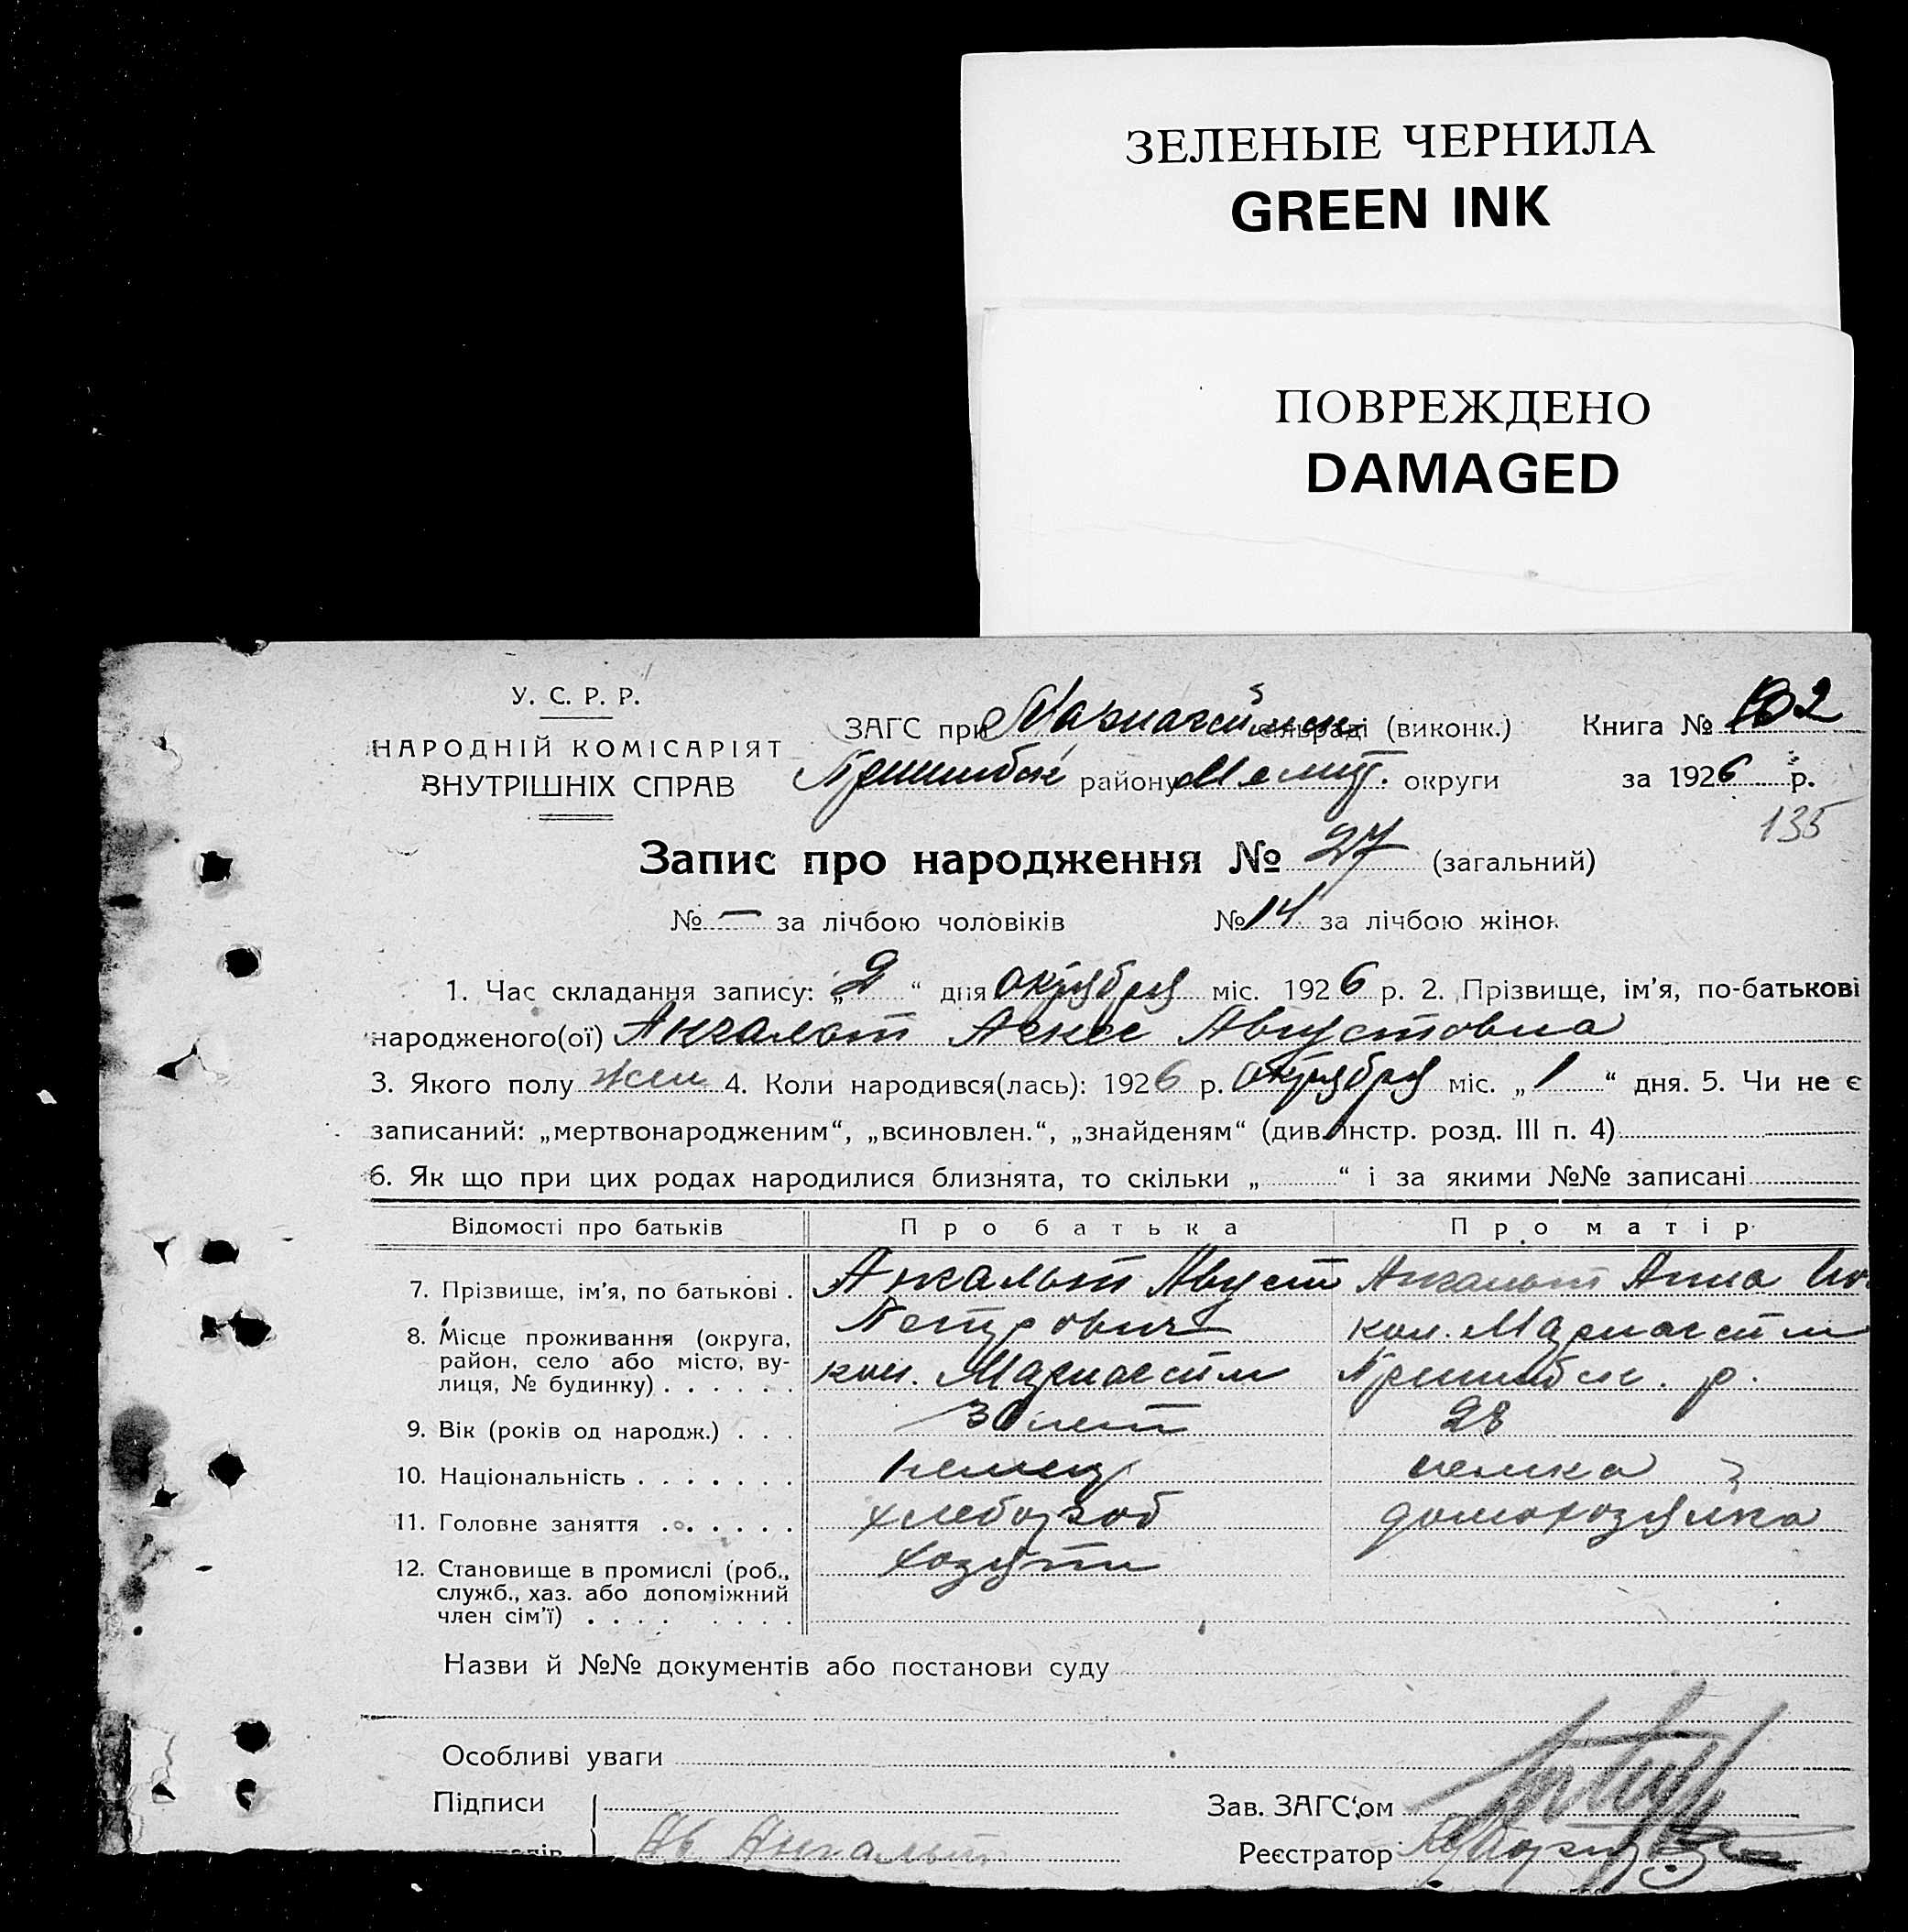 ЗЕЛЕНЫЕ ЧЕРНИЛА
GREEN INK
ПОВРЕЖДЕНО
DAMAGED
У. С. Р. Р.
НАРОДНІЙ КОМІСАРІЯТ
ВНУТРІШНІХ СПРАВ
ЗАГС при сільраді (виконк.) Книга № 102
Пришибск району Мелит. округи за 1926 р.
135
Запис про народження № 27 (загальний)
№ — за лічбою чоловіків № 14 за лічбою жінок
1. Час складання запису: „2“ дня октября міс. 1926 р. 2. Прізвище, ім'я, по-батькові
народженого(ої) Ангальт Агнес Августовна
3. Якого полу жен 4. Коли народився(лась): 1926 р. октября міс. „1“ дня. 5. Чи не є
записаний: „мертвонародженим“, „всиновлен.“, „знайденям“ (див. інстр. розд. III п. 4)
6. Як що при цих родах народилися близнята, то скільки „ “ і за якими №№ записані
Відомості про батьків Про батька Про матір
7. Прізвище, ім'я, по батькові . Ангальт Август Ангальт Анна
Петрович кол.
8. Місце проживання (округа, район, село або місто, вулиця, № будинку) . . . . . . кол. Пришибск. р.
9. Вік (років од народж.) . . . 30 лет 28
10. Національність . . . . . . . немец немка
11. Головне заняття . . . . . . хлебороб домохозяйка
12. Становище в промислі (роб., служб., хаз. або допоміжний член сім'ї) . . . . . . . . хозяин
Назви й №№ документів або постанови суду
Особливі уваги
Підписи Зав. ЗАГС'ом
Ав Ангальт Реєстратор